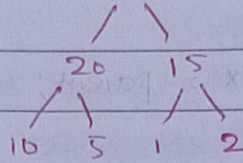 20 15
10 5 1 2